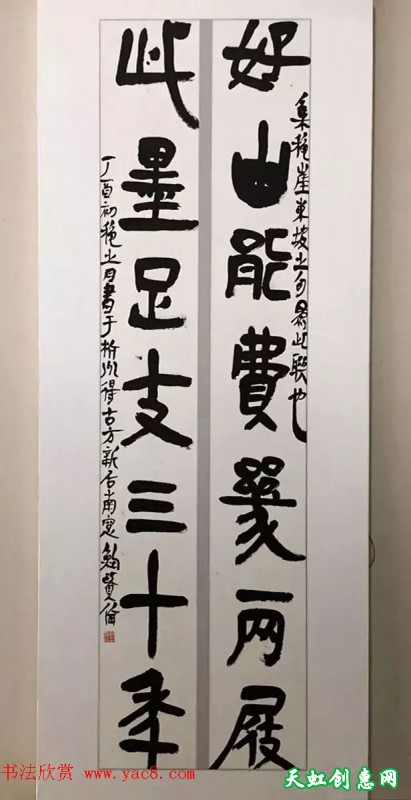 好山能費幾兩屐
集秋崖東坡之句為此聯也
此墨足支三十年
丁酉初秋之月書于杭州得古方新居南窗 鮑賢倫
书法欣赏 www.yac8.com
天虹创惠网